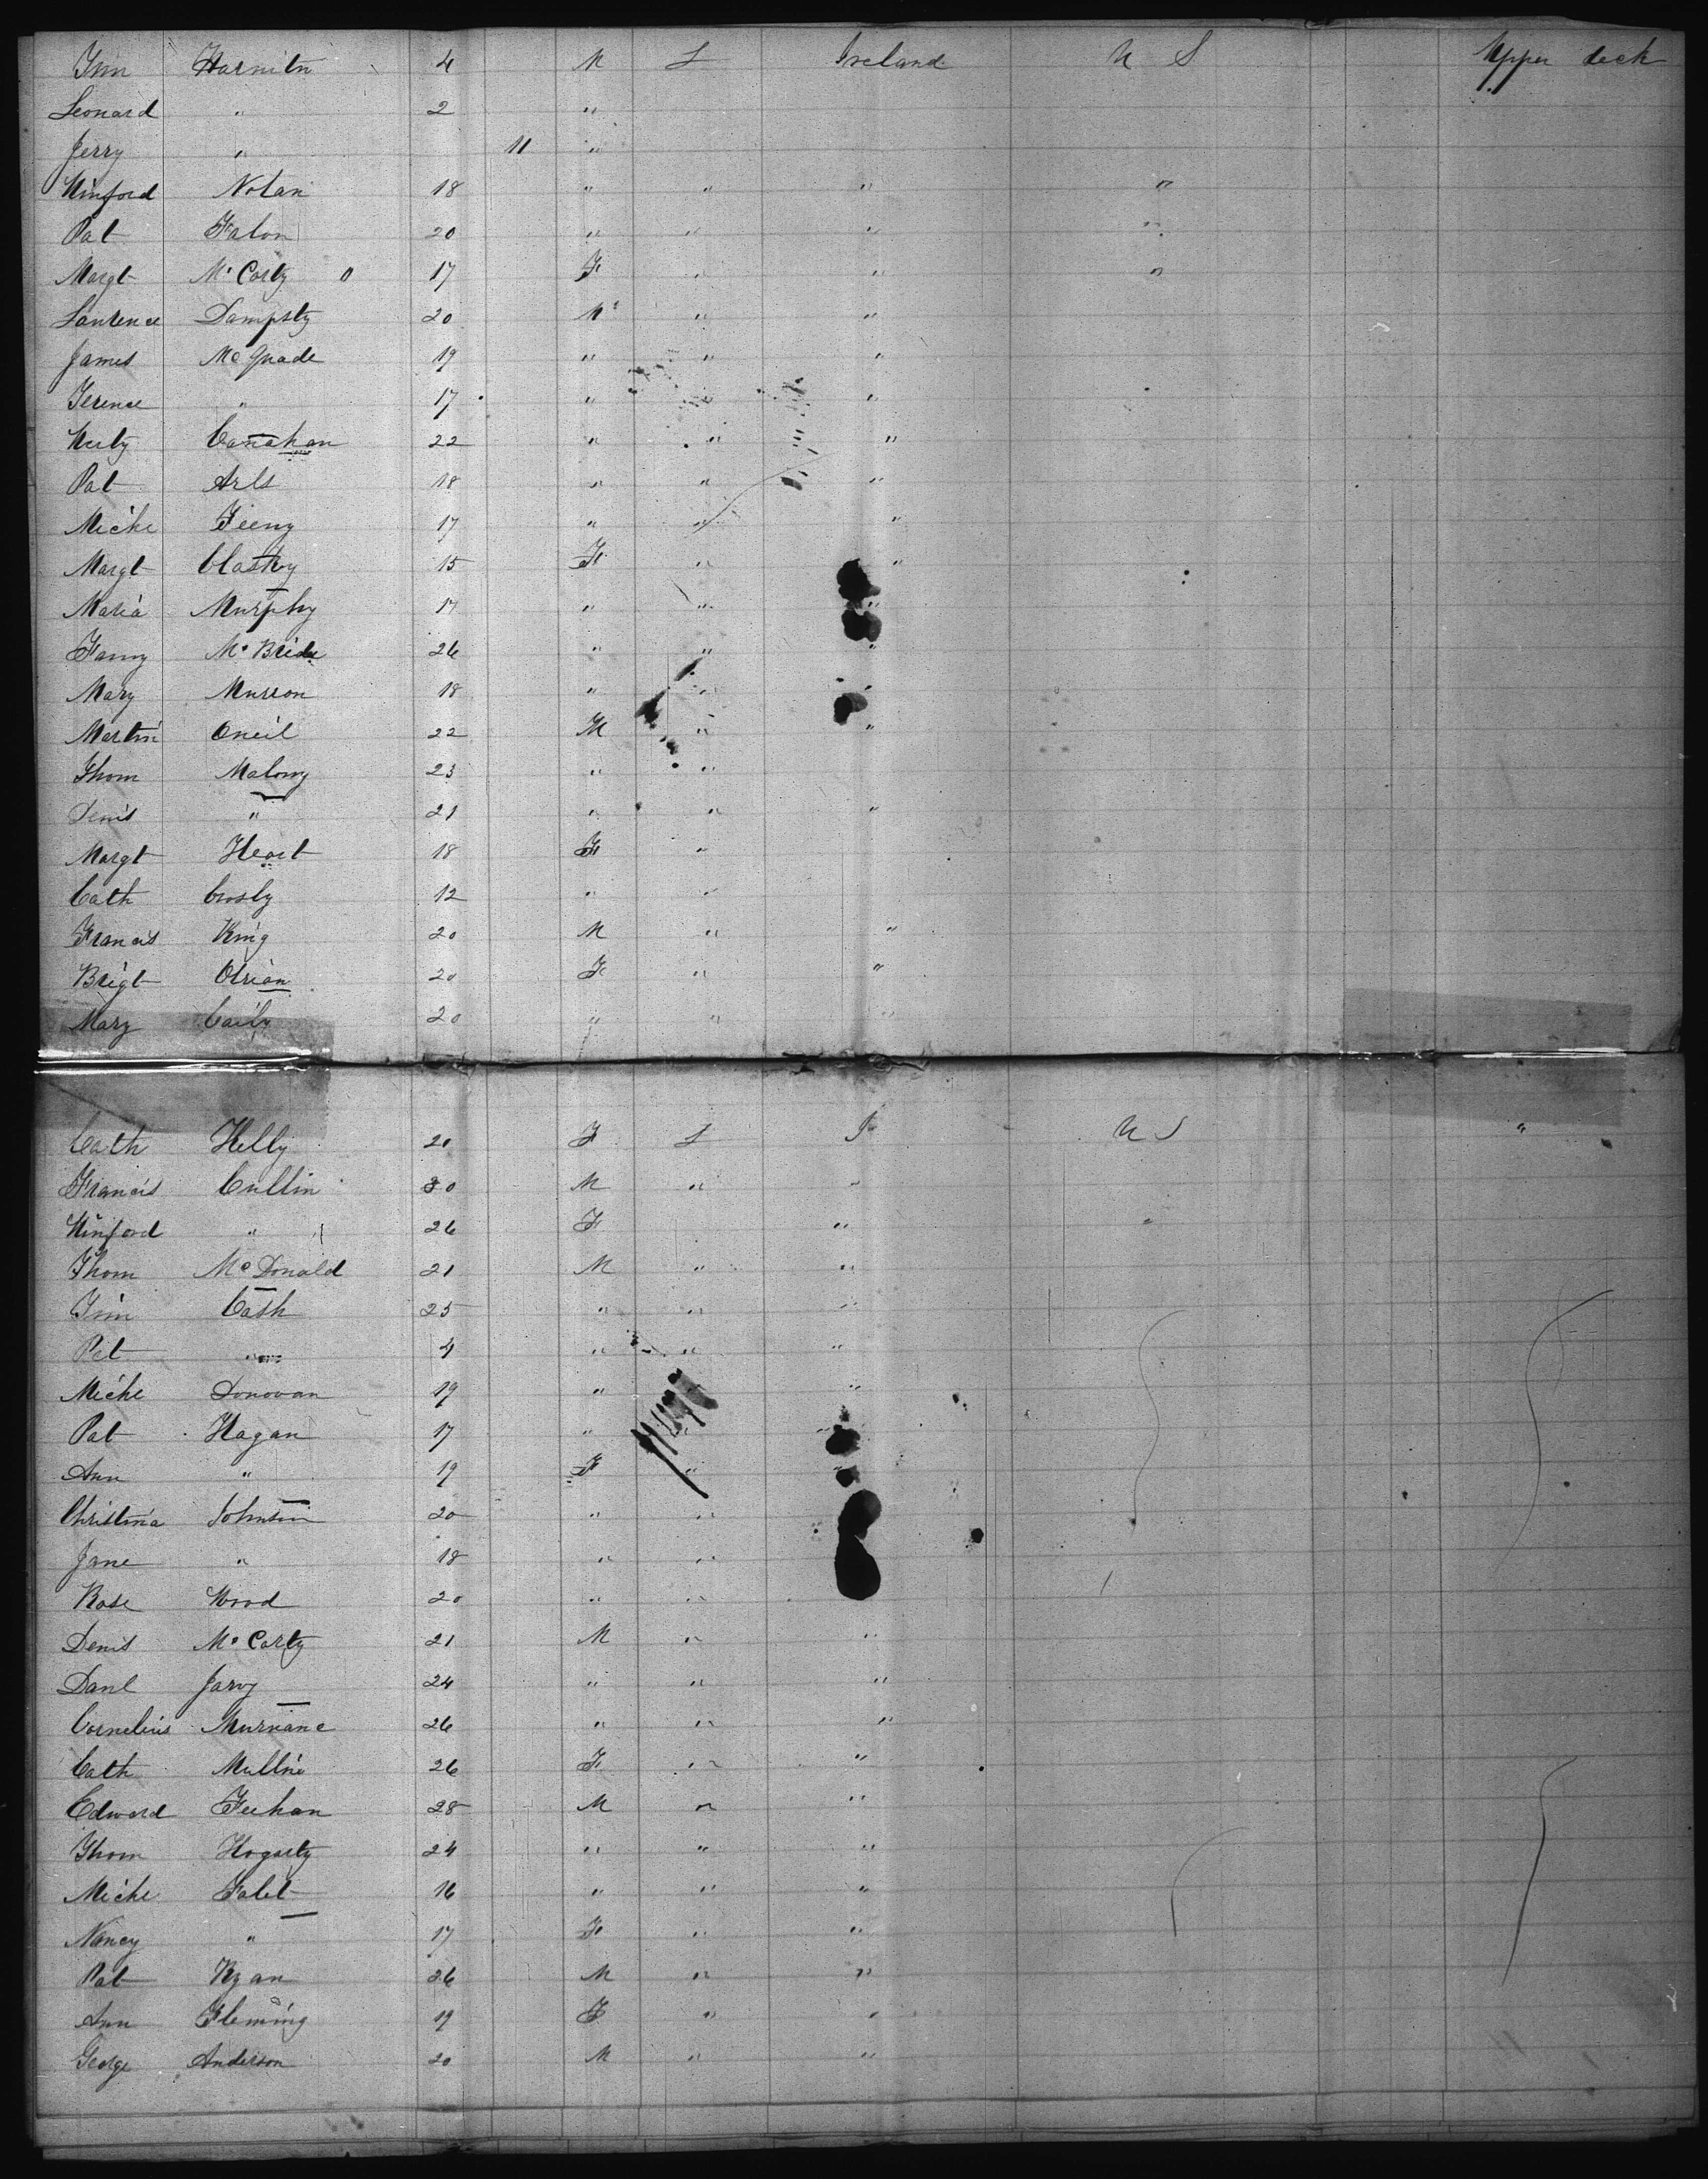 Tim Harnitn 4 M L Ireland U S Upper deck
Leonard " 2 "
Jerry " 11 "
Winford Nolan 18 " " " "
Pat Falon 20 " " " "
Margt McCarty 0 17 F " " "
Laurence Dampsty 20 M " "
James McQuade 19 " " "
Terence " 17 " " "
Canahan 22 " " "
Pat Arls 18 " " "
Miche Feeny 17 " " "
Margt Claskey 15 F " "
Maria Murphy 17 " " "
Fanny McBride 26 " " "
Mary Murron 18 " " "
Martin Oneil 22 M " "
Thom Malony 23 " "
Denis " 21 " " "
Margt Heart 18 F "
Cath Crosly 12 " "
Francis King 20 M " "
Brigt Obrian 20 F " "
Mary Caily 20 " " "
Cath Kelly 20 F L I U S "
Francis Cullin 30 M " "
Winford " 26 F " "
Thom McDonald 21 M " "
Tim Cash 25 " " "
Pet " 4 " " "
Miche Donovan 19 " "
Pat Hagan 17 " " "
Ann " 19 F " "
Christina Johnson 20 " "
Jane " 18 " "
Rose Wood 20 " "
Denis McCarty 21 M " "
Danl Jarvy 24 " " "
Cornelius Murnane 26 " " "
Cath Mullin 26 F " "
Edward Feehan 28 M " "
Thom Hogarty 24 " " "
Miche Falit 16 " " "
Nancy " 17 F " "
Pat Ryan 26 M " "
Ann Fleming 19 F " "
George Anderson 20 M " "